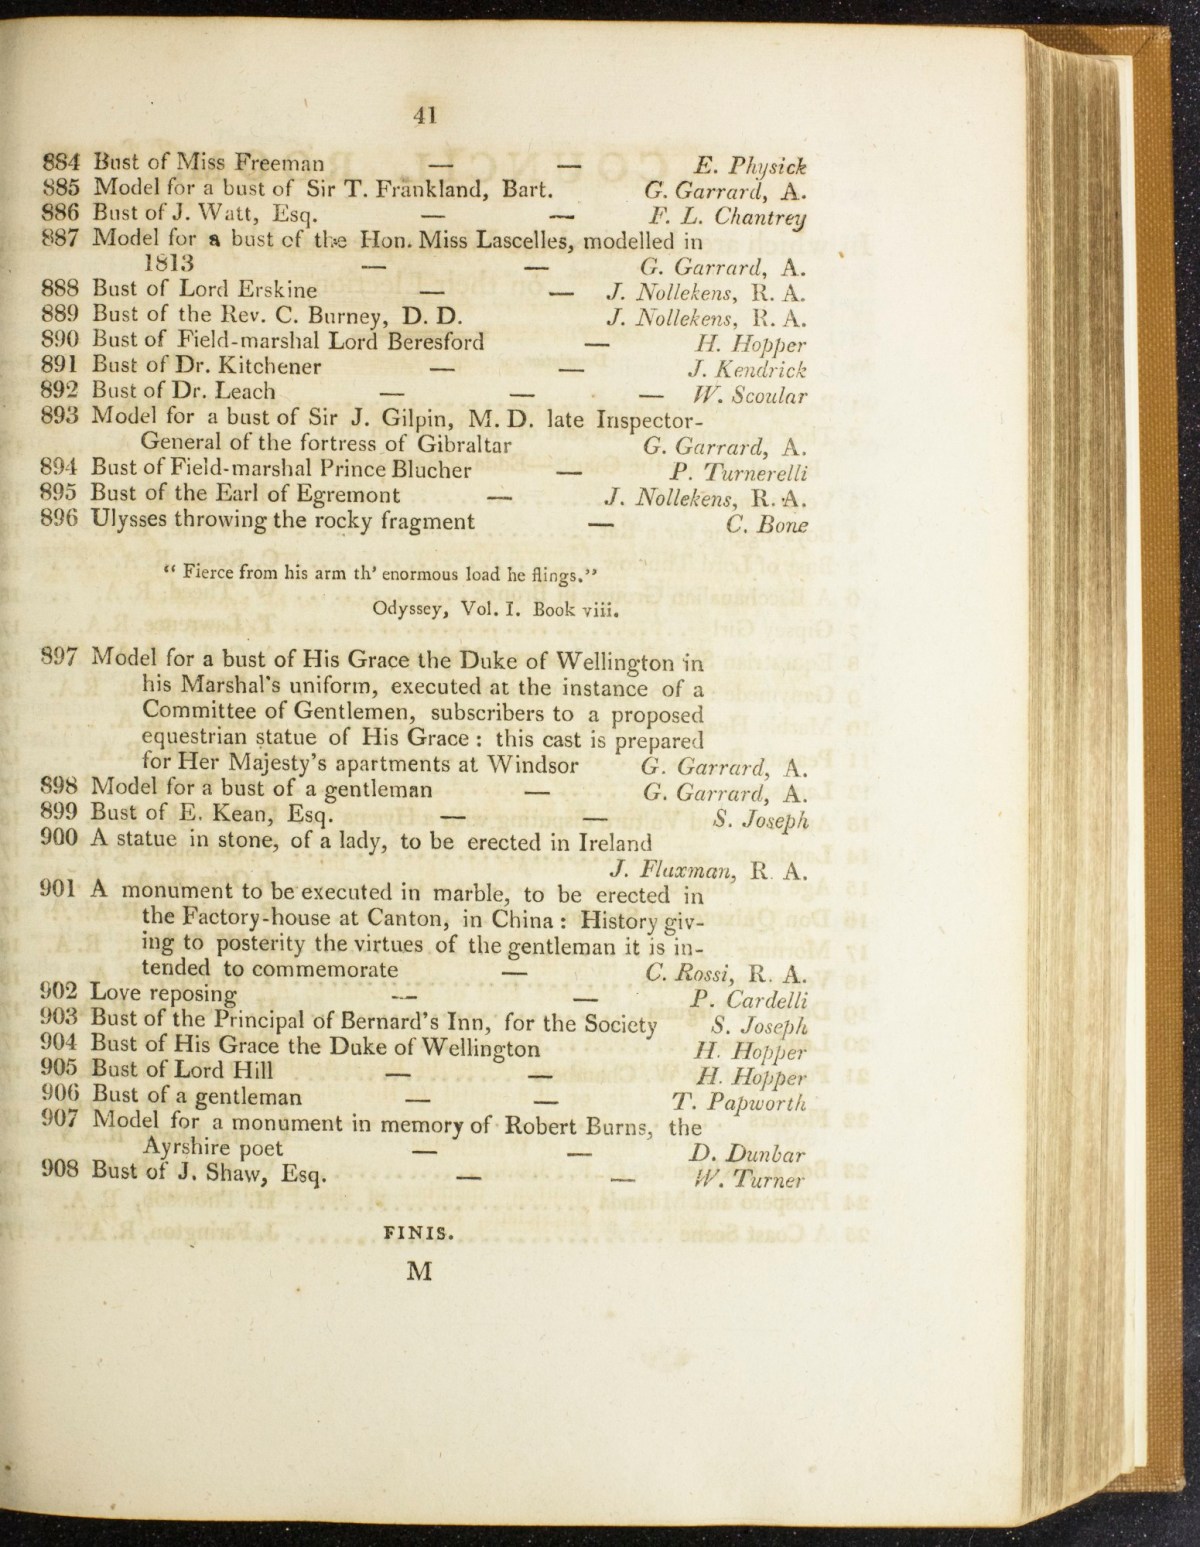 41
884 Bust of Miss Freeman — — E. Physick
885 Model for a bust of Sir T. Frankland, Bart. G. Garrard, A.
886 Bust of J. Watt, Esq. — — F. L. Chantrey
887 Model for a bust of the Hon. Miss Lascelles, modelled in
1813 — — G. Garrard, A.
888 Bust of Lord Erskine — — J. Nollekens, R. A.
889 Bust of the Rev. C. Burney, D. D. J. Nollekens, R. A.
890 Bust of Field-marshal Lord Beresford — H. Hopper
891 Bust of Dr. Kitchener — — J. Kendrick
892 Bust of Dr. Leach — — — W. Scoular
893 Model for a bust of Sir J. Gilpin, M. D. late Inspector-
General of the fortress of Gibraltar G. Garrard, A.
894 Bust of Field-marshal Prince Blucher — P. Turnerelli
895 Bust of the Earl of Egremont — J. Nollekens, R. A.
896 Ulysses throwing the rocky fragment — C. Bone
“ Fierce from his arm th’ enormous load he flings.”
Odyssey, Vol. I. Book viii.
897 Model for a bust of His Grace the Duke of Wellington in
his Marshal's uniform, executed at the instance of a
Committee of Gentlemen, subscribers to a proposed
equestrian statue of His Grace : this cast is prepared
for Her Majesty’s apartments at Windsor G. Garrard, A.
898 Model for a bust of a gentleman — G. Garrard, A.
899 Bust of E. Kean, Esq. — — S. Joseph
900 A statue in stone, of a lady, to be erected in Ireland
J. Flaxman, R. A.
901 A monument to be executed in marble, to be erected in
the Factory-house at Canton, in China : History giv-
ing to posterity the virtues of the gentleman it is in-
tended to commemorate — C. Rossi, R. A.
902 Love reposing — — P. Cardelli
903 Bust of the Principal of Bernard’s Inn, for the Society S. Joseph
904 Bust of His Grace the Duke of Wellington H. Hopper
905 Bust of Lord Hill — — H. Hopper
906 Bust of a gentleman — — T. Papworth
907 Model for a monument in memory of Robert Burns, the
Ayrshire poet — — D. Dunbar
908 Bust of J. Shaw, Esq. — — W. Turner
FINIS.
M